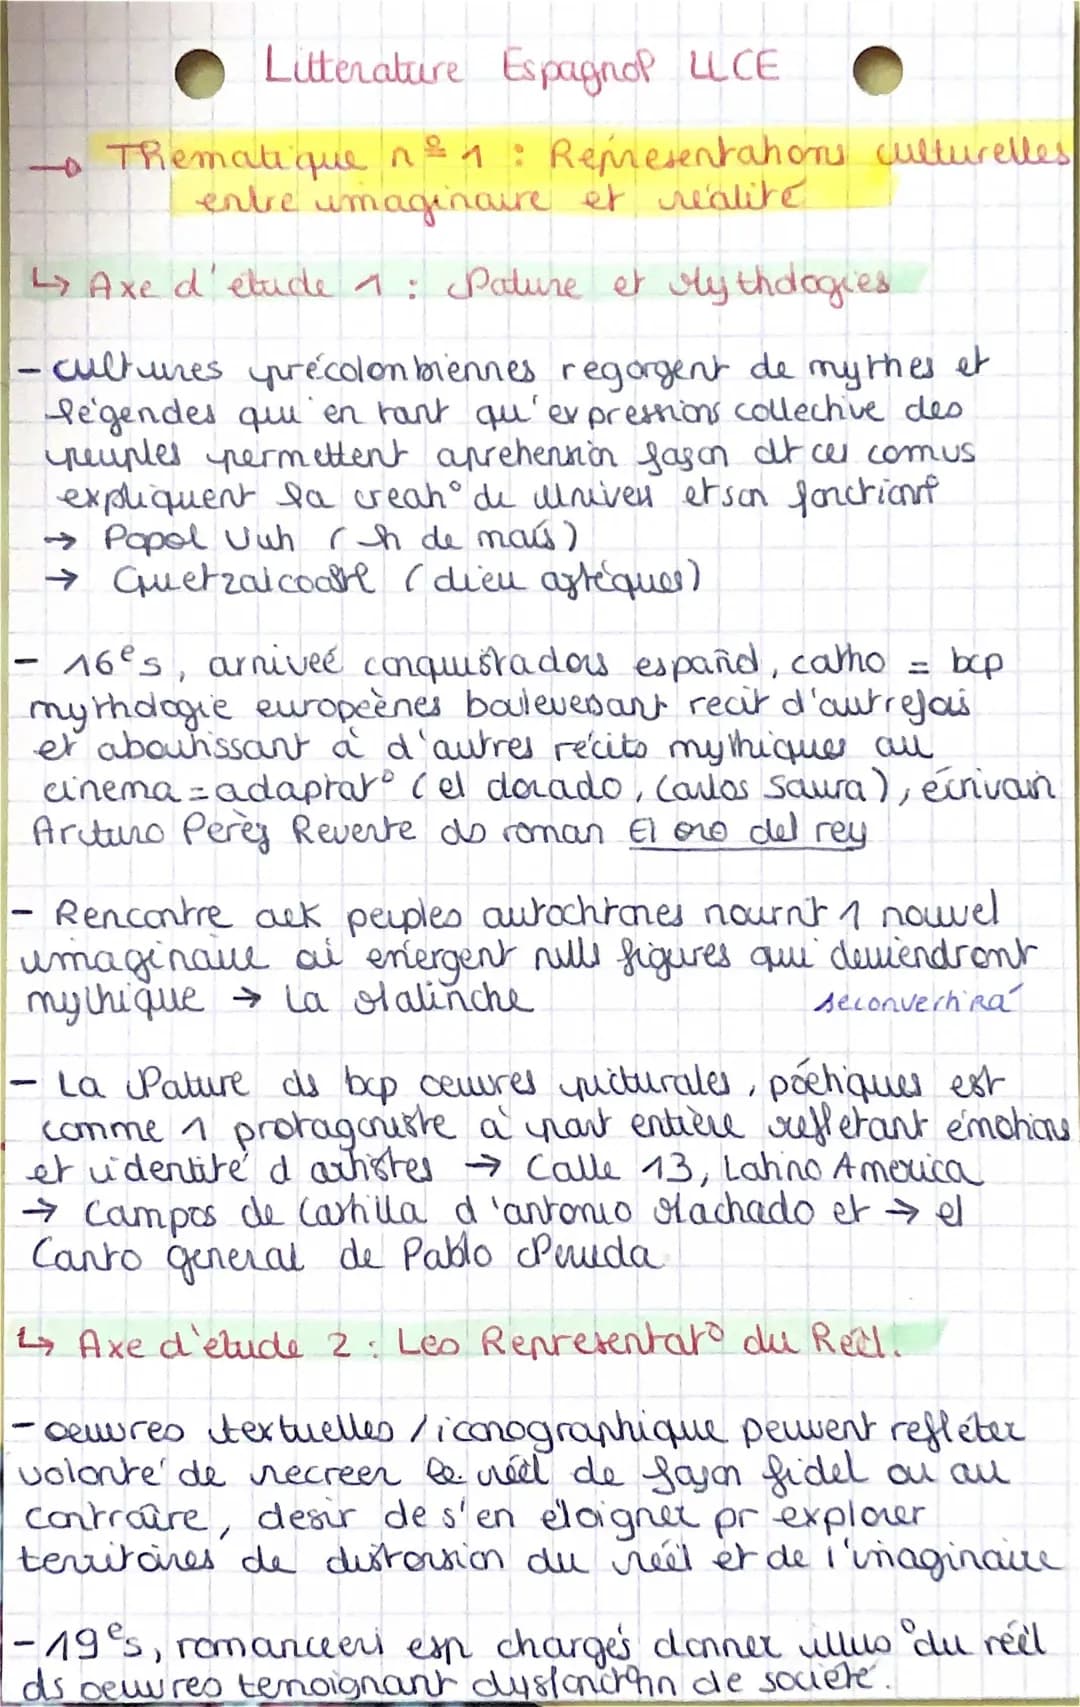 Litterature Espagnol LLCE
→ Thematique nº 1 : Representations culturelles
entre imaginaire et réalité
↳ Axe d'etude 1 : Nature et Mythologies
- cultures précolombiennes regorgent de mythes et
légendes qui en tant qu'expressions collective des
peuples permettent aprehension façon dt ces comus
expliquent la creat° de univers et son fonctiont
→ Popol Vuh ( h de maïs)
→ Quetzalcoatl (dieu aztèques)
- 16es, arriveé conquistadors español, catho = bcp
mythologie européènes boulevesant recit d'autrefois
et aboutissant à d'autres récits mythiques au
cinema = adaptat° (el dorado, Carlos Saura), écrivain
Arturo Perèz Reverte ds roman El oro del rey
- Rencontre avk peuples autochtones nourrit 1 nouvel
imaginaire où emergent nvlls figures qui deviendront
mythique → La Malinche
se convertira
- La Nature ds bcp oeuvres picturales, poétiques est
comme 1 protagoniste à part entière refletant émotions
et identité d artistes → Calle 13, Latino America
→ Campos de Castilla d'antonio Machado et → el
Canto general de Pablo Neruda
↳ Axe d'etude 2 : Les Representat° du Reèl.
- oeuvres textuelles / iconographique peuvent refléter
volonté de recreer le réel de façon fidel ou au
contraîre, desir de s'en éloigner pr explorer
territoires de distorsion du réel et de l'imaginaire
- 19es, romanciers esp chargés donner illus° du réel
ds oeuvres temoignant de societé.